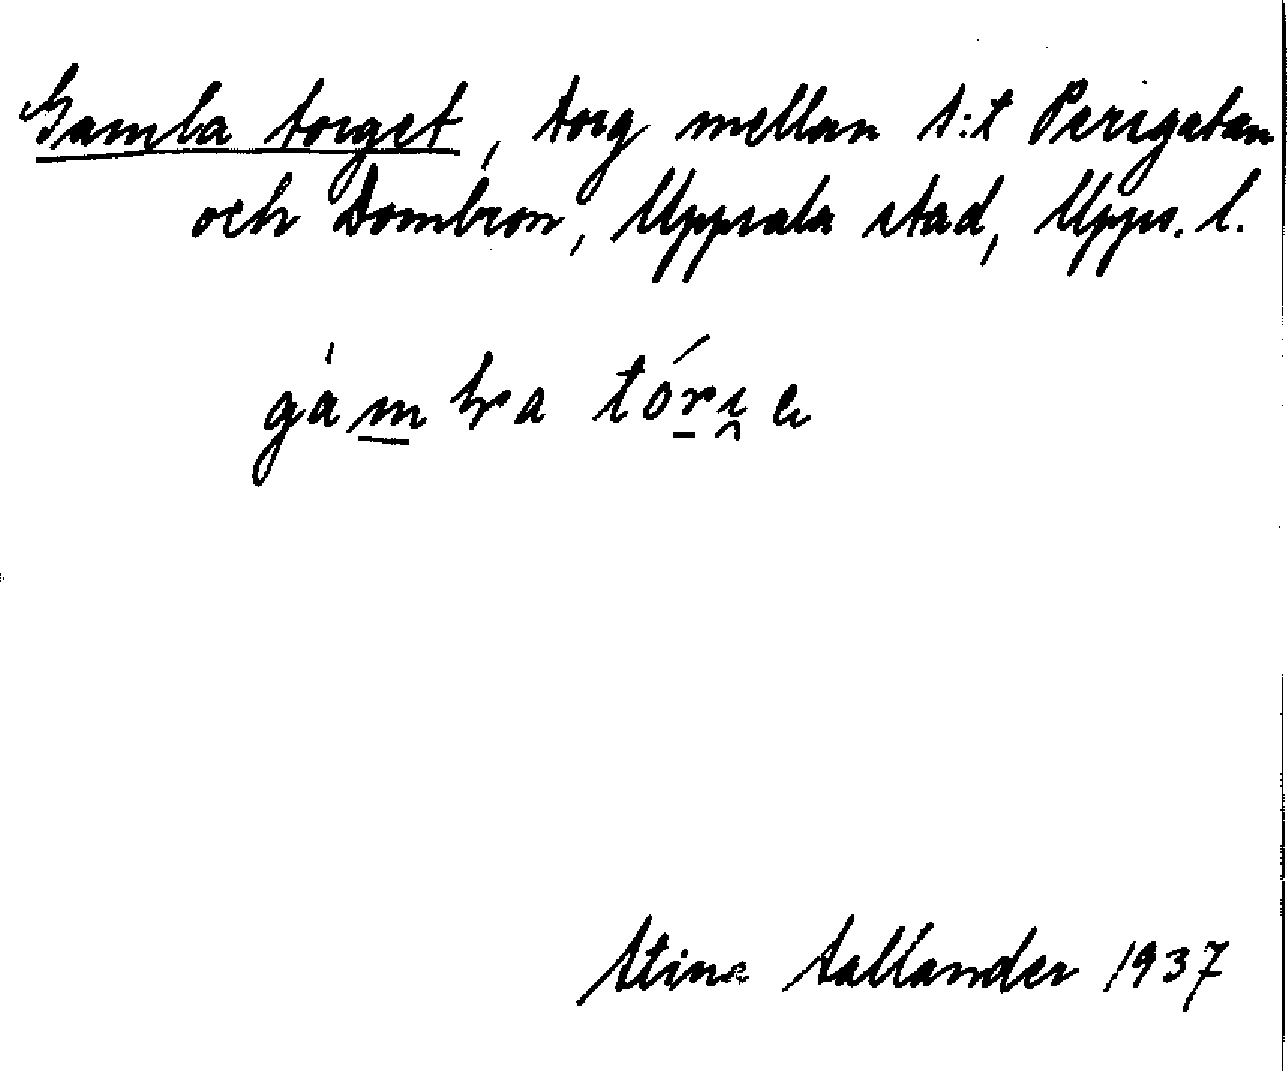 Gamla torget, torg mellan S:t Persgatan
och Dombron, Uppsala stad, Upps. l.
Stina Sallander 1937